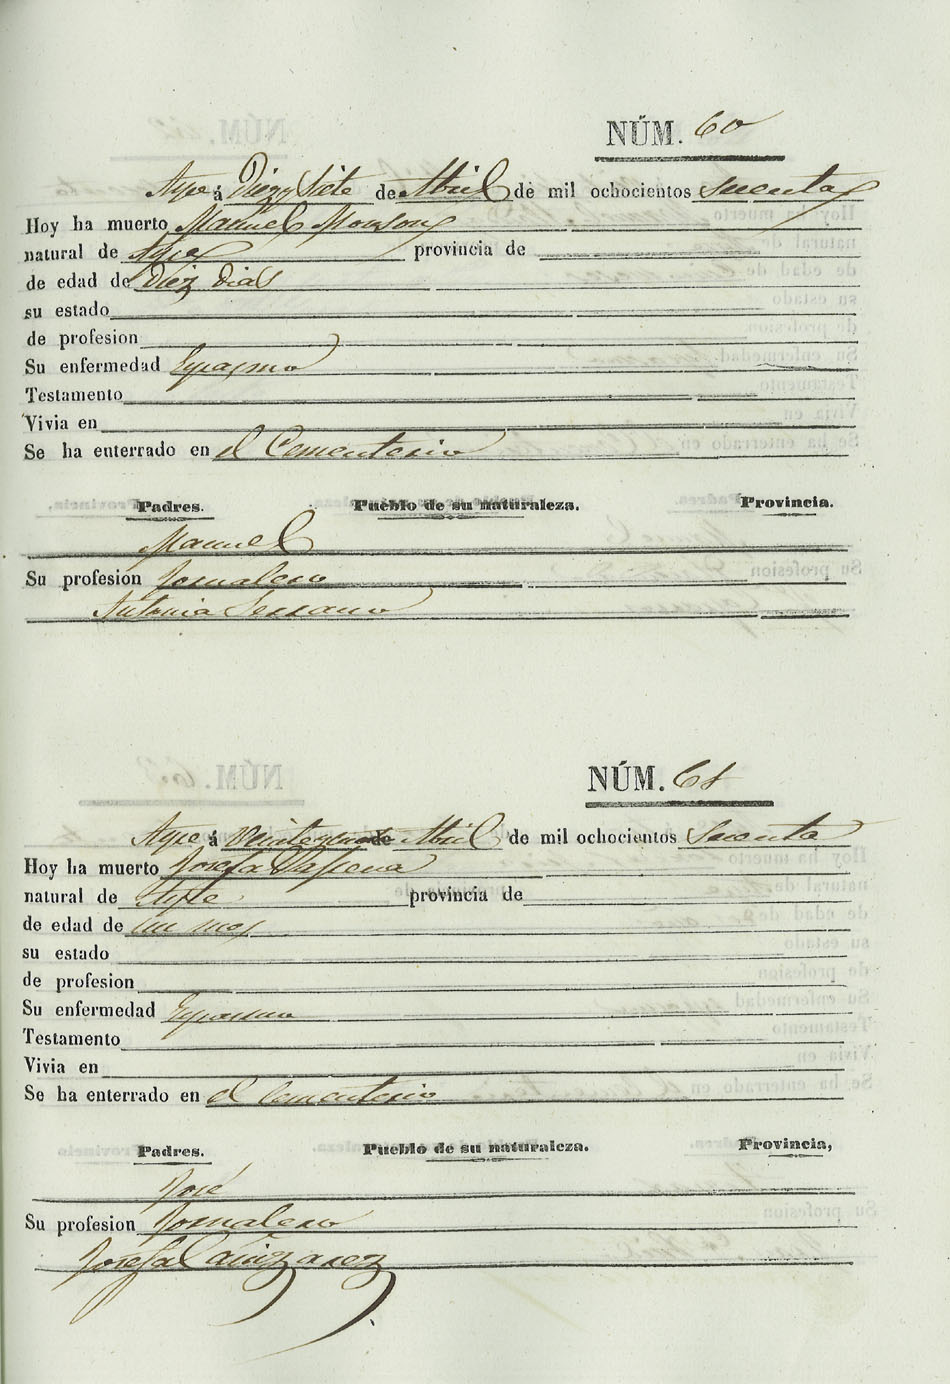 NÚM. 60
Aspe á Diez y Siete de Abril de mil ochocientos sesenta
Hoy ha muerto Manuel
natural de Aspe provincia de
de edad de Diez Dias
su estado
de profesion
Su enfermedad Espasmo
Testamento
Vivia en
Se ha enterrado en el Cementerio
Padres. Pueblo de su naturaleza. Provincia.
Manuel
Su profesion Jornalero
Antonia Serrano
NÚM. 61
Aspe á de Abril de mil ochocientos sesenta
Hoy ha muerto Josefa
natural de Aspe provincia de
de edad de un mes
su estado
de profesion
Su enfermedad Espasmo
Testamento
Vivia en
Se ha enterrado en el Cementerio
Padres. Pueblo de su naturaleza. Provincia,
José
Su profesion Jornalero
Josefa Cañizarez